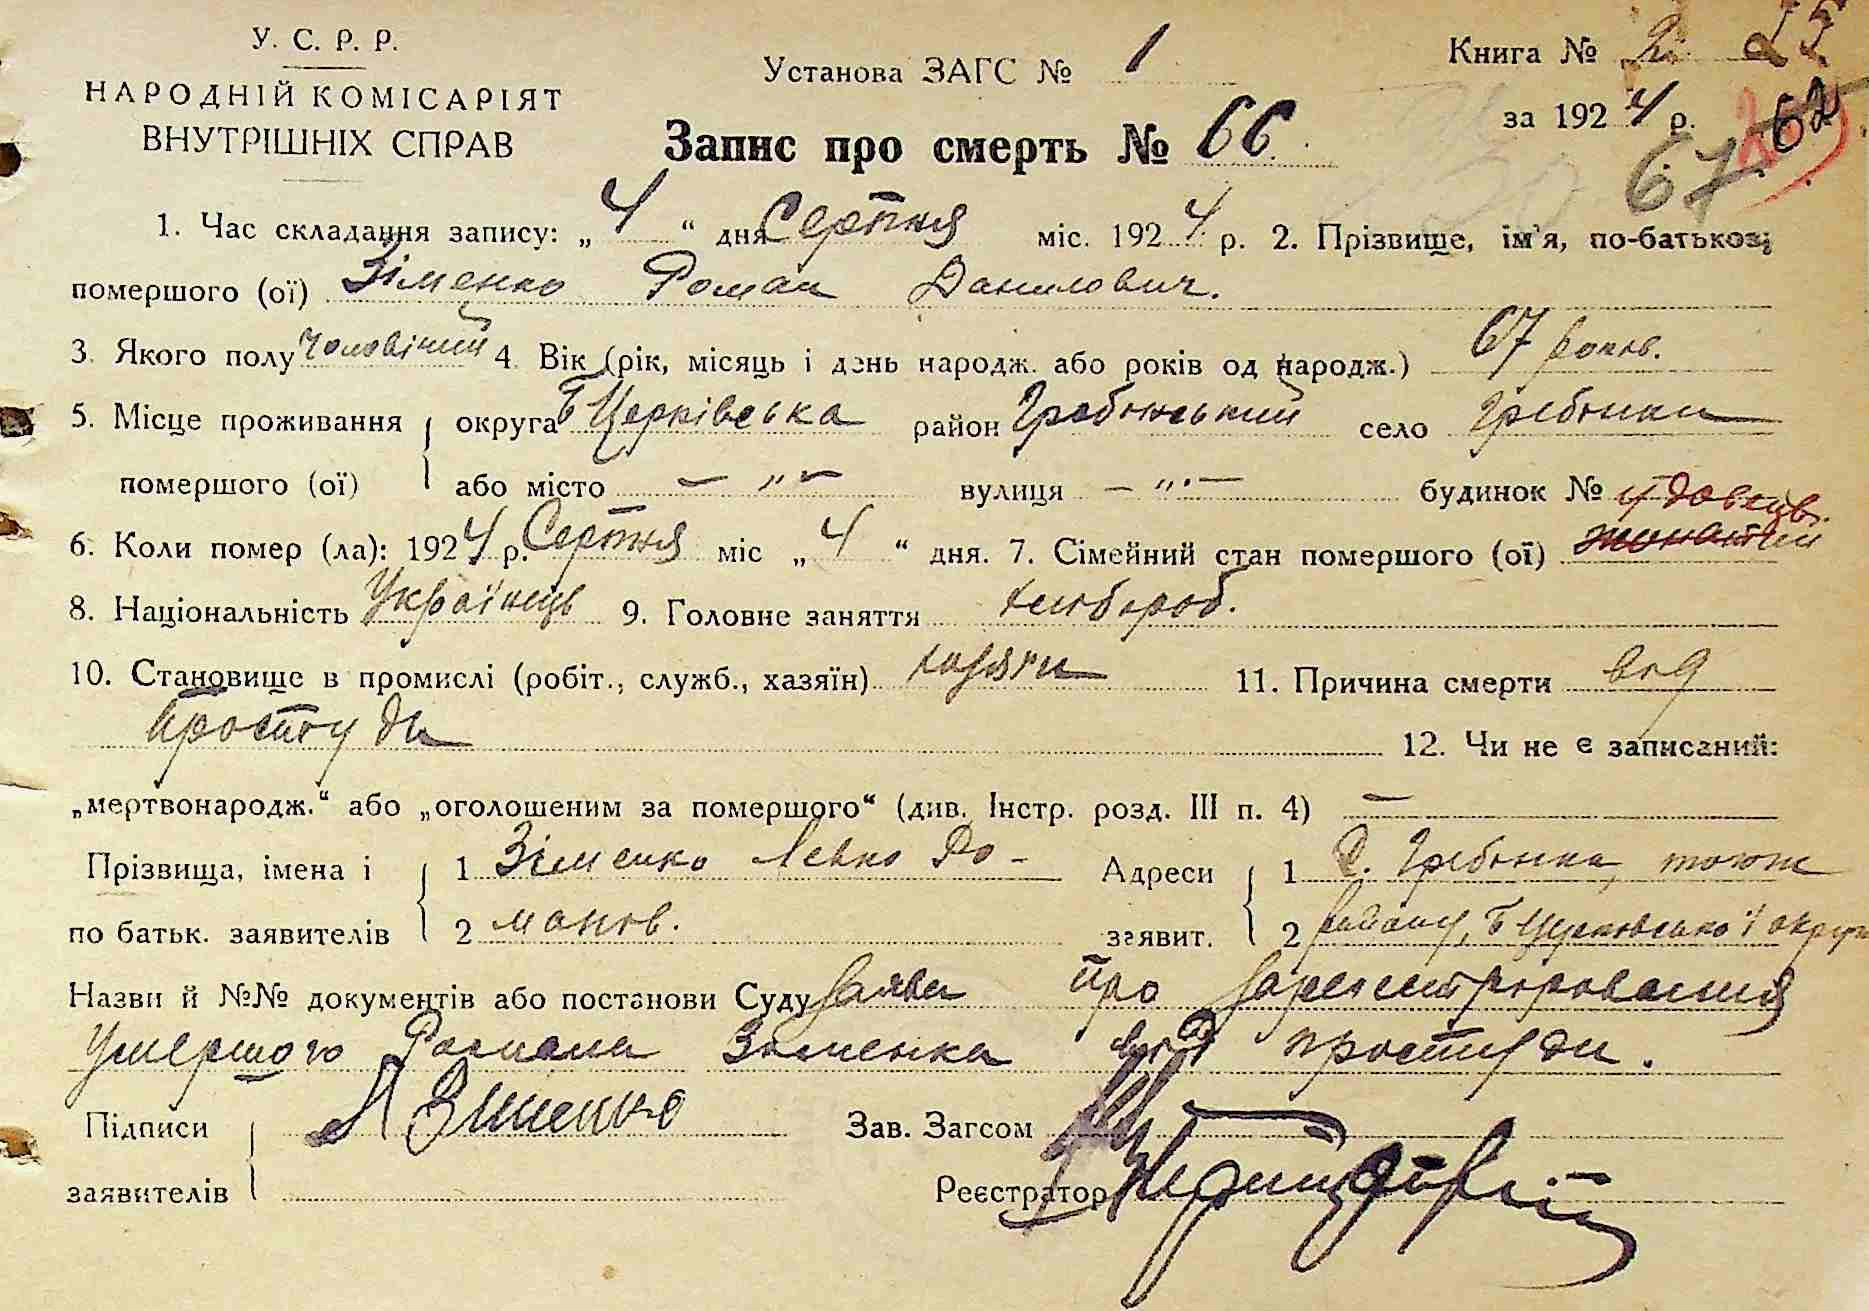 У. С. Р. Р.
НАРОДНІЙ КОМІСАРІЯТ
ВНУТРІШНІХ СПРАВ
Установа ЗАГС № 1
Книга № 2. 25
за 1924 р. 62
67
Запис про смерть № 66.
1. Час складання запису: „ 4 “ дня Серпня міс. 1924 р. 2. Прізвище, ім'я, по-батькові
помершого (ої) Зіменко Роман Данилович.
3. Якого полу Чоловічий 4. Вік (рік, місяць і день народж. або років од народж.) 67 років.
5. Місце проживання округа Б Церківська район Гребінський село Гребінки
помершого (ої) або місто — „ — вулиця — „ — будинок №
удовець
6. Коли помер (ла): 1924 р. Серпня міс „ 4 “ дня. 7. Сімейний стан помершого (ої) жонатий
8. Національність Українець 9. Головне заняття хлібороб.
10. Становище в промислі (робіт., служб., хазяїн) хазяїн 11. Причина смерти від
простуди 12. Чи не є записаний:
„мертвонародж.“ або „оголошеним за помершого“ (див. Інстр. розд. III п. 4) —
Прізвища, імена і 1 Зіменко Левко Ро- Адреси 1 С. Гребінка, того ж
по батьк. заявителів 2 манов. заявит. 2 району, Б Церковської округи
Назви й №№ документів або постанови Суду Заява про
умершого Романа Зименка від простуди.
Підписи Л Зименко Зав. Загсом
заявителів Реєстратор